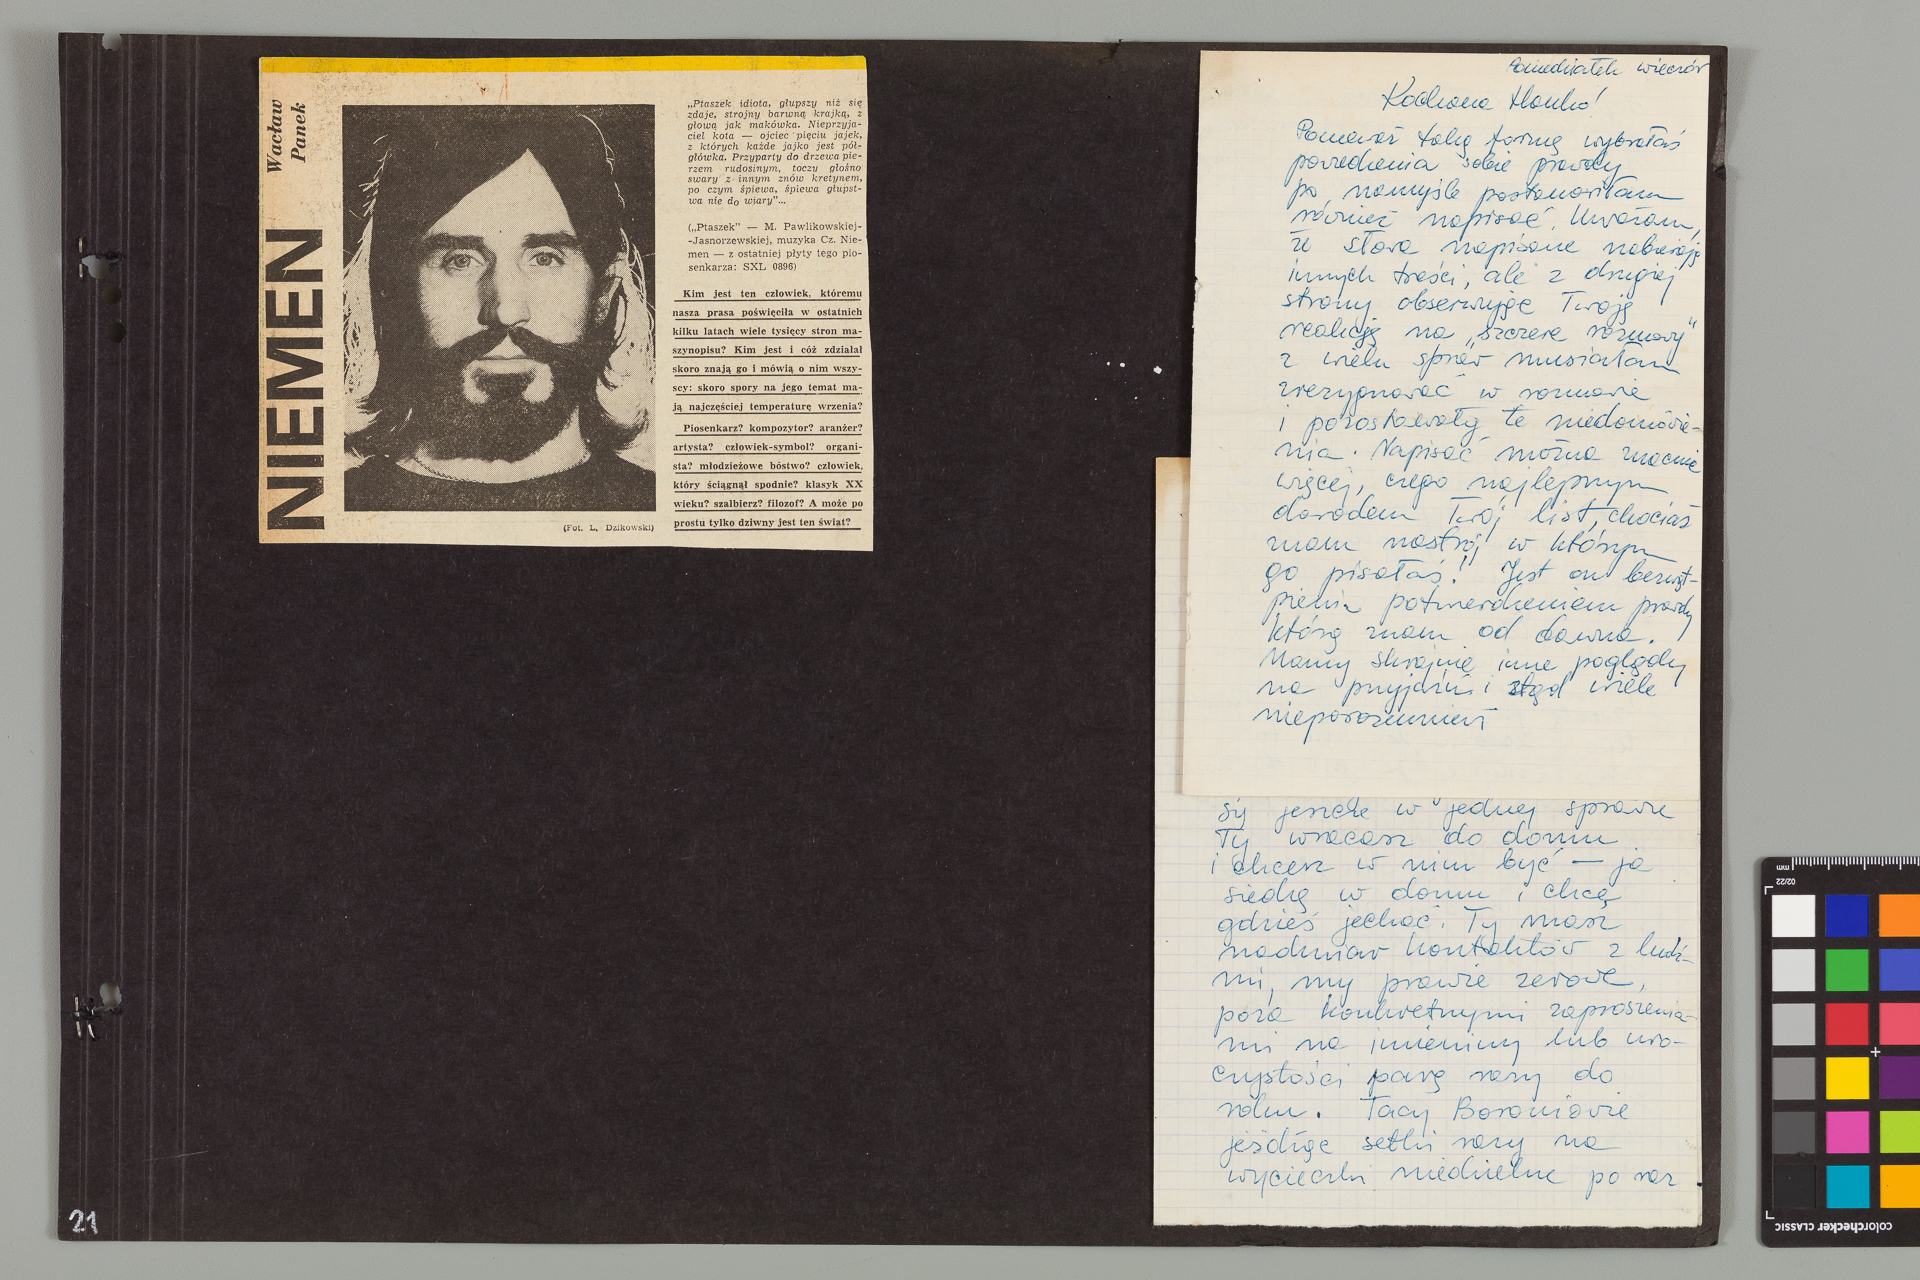 Wacław
Panek
NIEMEN
(Fot. L. Dzikowski)
„Ptaszek idiota, głupszy niż się
zdaje, strojny barwną krajką, z
głową jak makówka. Nieprzyja-
ciel kota — ojciec pięciu jajek,
z których każde jajko jest pół-
główka. Przyparty do drzewa pie-
rzem rudosinym, toczy głośno
swary z innym znów kretynem,
po czym śpiewa, śpiewa głupst-
wa nie do wiary”...
(„Ptaszek” — M. Pawlikowskiej-
-Jasnorzewskiej, muzyka Cz. Nie-
men — z ostatniej płyty tego pio-
senkarza: SXL 0896)
Kim jest ten człowiek, któremu
nasza prasa poświęciła w ostatnich
kilku latach wiele tysięcy stron ma-
szynopisu? Kim jest i cóż zdziałał
skoro znają go i mówią o nim wszy-
scy: skoro spory na jego temat ma-
ją najczęściej temperaturę wrzenia?
Piosenkarz? kompozytor? aranżer?
artysta? człowiek-symbol? organi-
sta? młodzieżowe bóstwo? człowiek,
który ściągnął spodnie? klasyk XX
wieku? szalbierz? filozof? A może po
prostu tylko dziwny jest ten świat?
Poniedziałek wieczór
Kochana Hanko!
Ponieważ taką formę wybrałaś
powiedzenia sobie prawdy
po namyśle postanowiłam
również napisać. Uważam,
że słowa napisane nabierają
innych treści, ale z drugiej
strony obserwując Twoją
reakcję na „szczere rozmowy”
z wielu spraw musiałam
zrezygnować w rozmowie
i pozostawały te niedomówie-
nia. Napisać można znacznie
więcej, czego najlepszym
dowodem Twój list, chociaż
znam nastrój w którym
go pisałaś! Jest on bezwąt-
pienia potwierdzeniem prawdy
którą znam od dawna.
Mamy skrajnie inne poglądy
na przyjaźń i stąd wiele
nieporozumień
się jeszcze w jednej sprawie
Ty wracasz do domu
i chcesz w nim być — ja
siedzę w domu i chcę
gdzieś jechać. Ty masz
nadmiar kontaktów z ludź-
mi, my prawie zerowe,
poza konkretnymi zaproszenia-
mi na imieniny lub uro-
czystości parę razy do
roku. Tacy Boroniowie
jeżdżąc setki razy na
wycieczki niedzielne po raz
21
mm
02/22
colorchecker CLASSIC